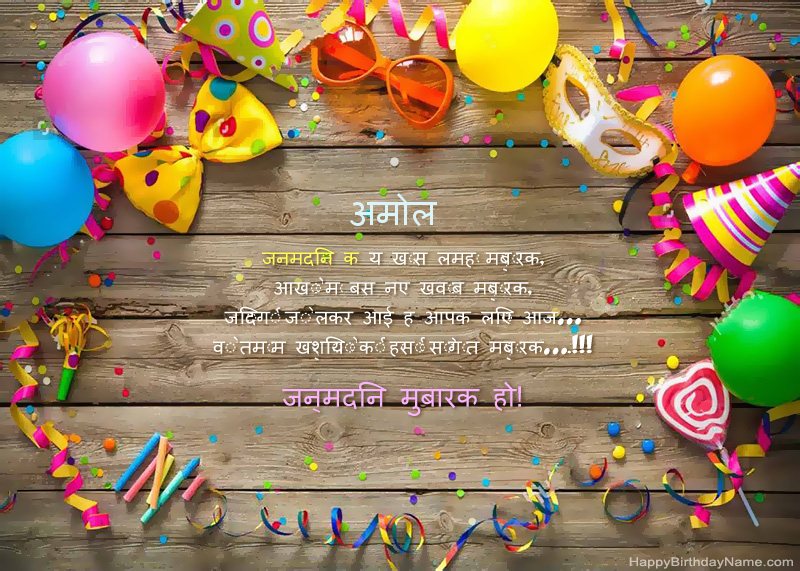 अमोल
जनमदनि क य खास लमहा मबारक,
आखों में बस नए खवाब मबारक,
जदिगी जो लेकर आई ह आपक लिए आज...
वो तमाम खशियों की हसी सौगात मबारक...!!!
जन्मदनि मुबारक हो!
HappyBirthdayName.com